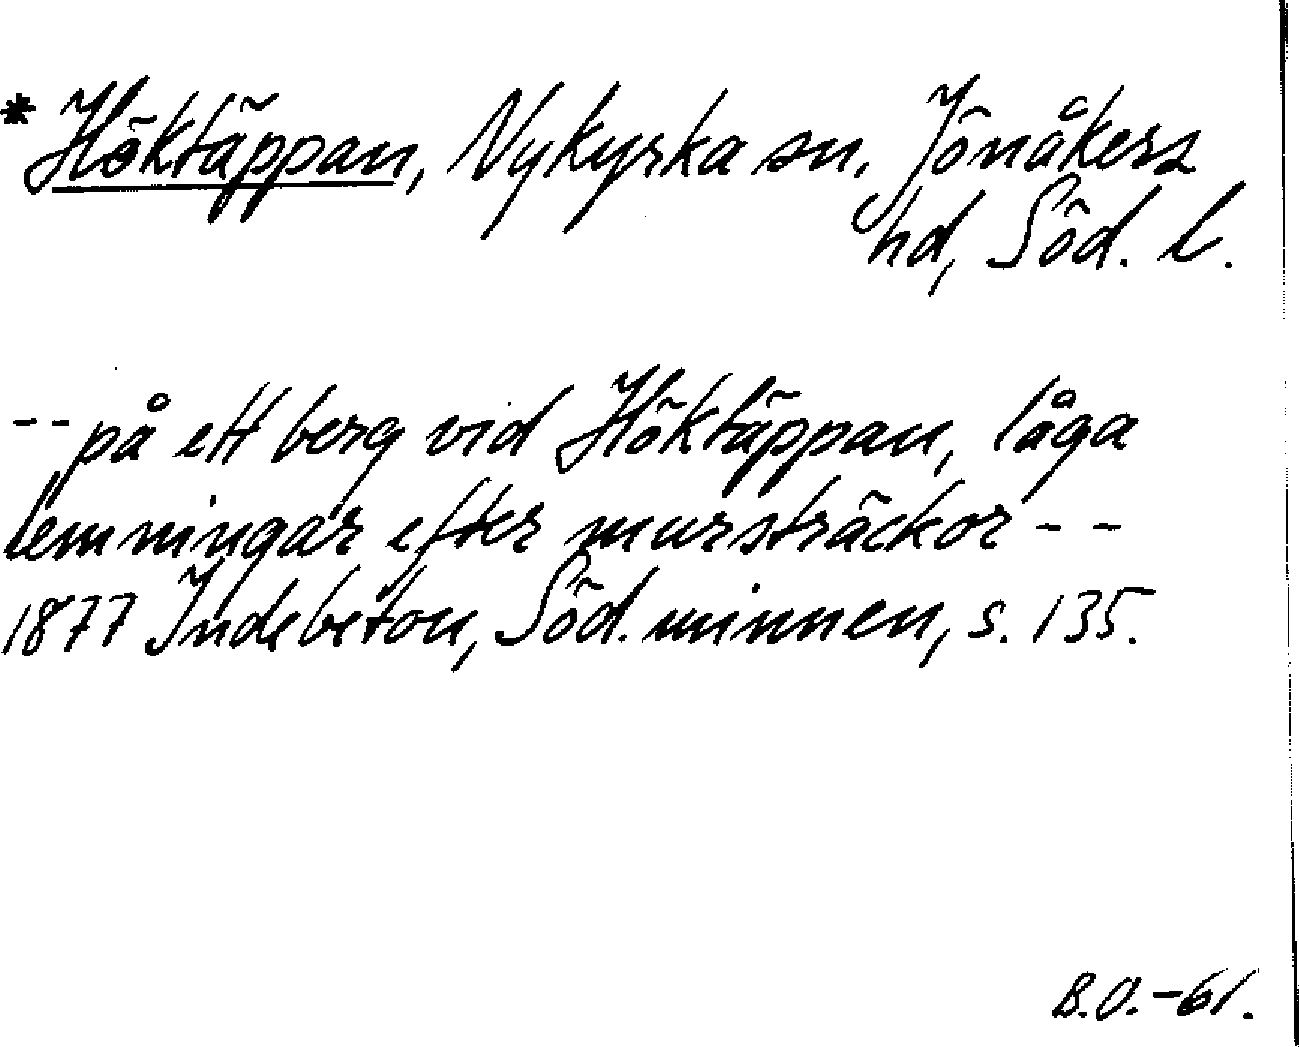 * Höktäppan, Nykyrka sn, Jönåkers
hd, Söd. l.
-- på ett berg vid Höktäppan, låga
lemningar efter mursträckor --
1877 Indebetou, Söd. minnen, s. 135.
B.O. -61.